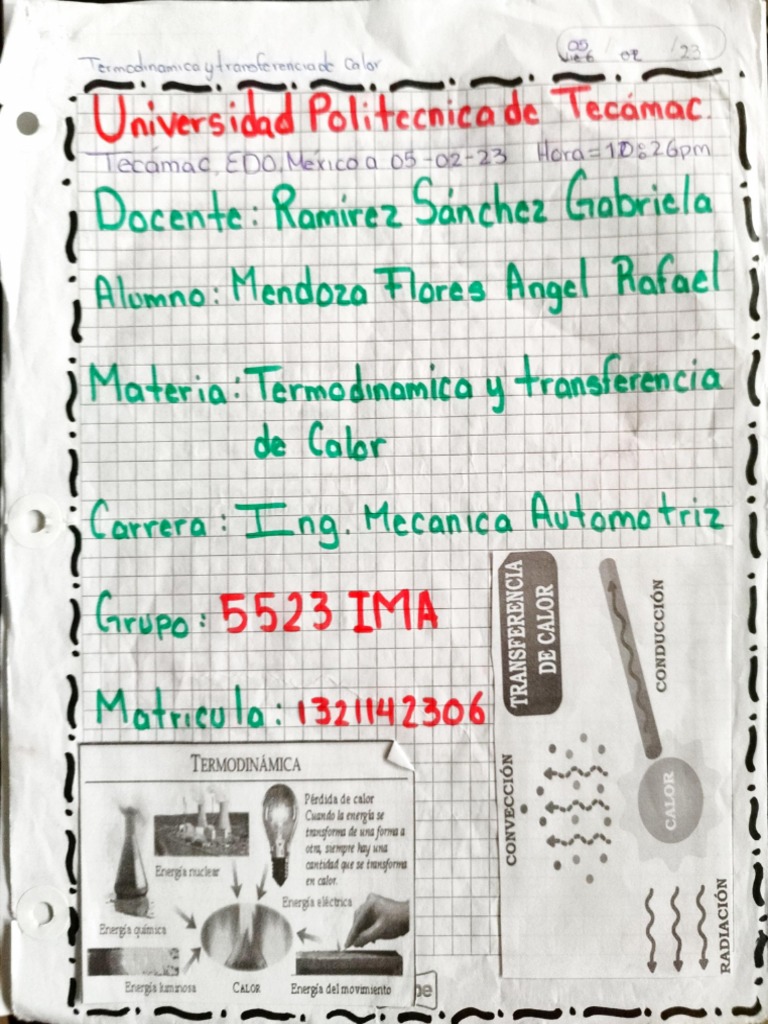 Termodinamica y transferencia de Calor
05 / 02 / 23
Universidad Politecnica de Tecámac.
Tecámac, EDO, México a 05-02-23 Hora=10:26pm
Docente: Ramírez Sánchez Gabriela
Alumno: Mendoza Flores Angel Rafael
Materia: Termodinamica y transferencia
de Calor
Carrera: Ing. Mecanica Automotriz
Grupo: 5523 IMA
Matricula: 1321142306
TERMODINÁMICA
Pérdida de calor
Cuando la energía se
transforma de una forma a
otra, siempre hay una
cantidad que se transforma
en calor.
Energía nuclear
Energía eléctrica
Energía química
Energía luminosa
CALOR
Energía del movimiento
be
TRANSFERENCIA
DE CALOR
CONDUCCIÓN
CONVECCIÓN
CALOR
RADIACIÓN